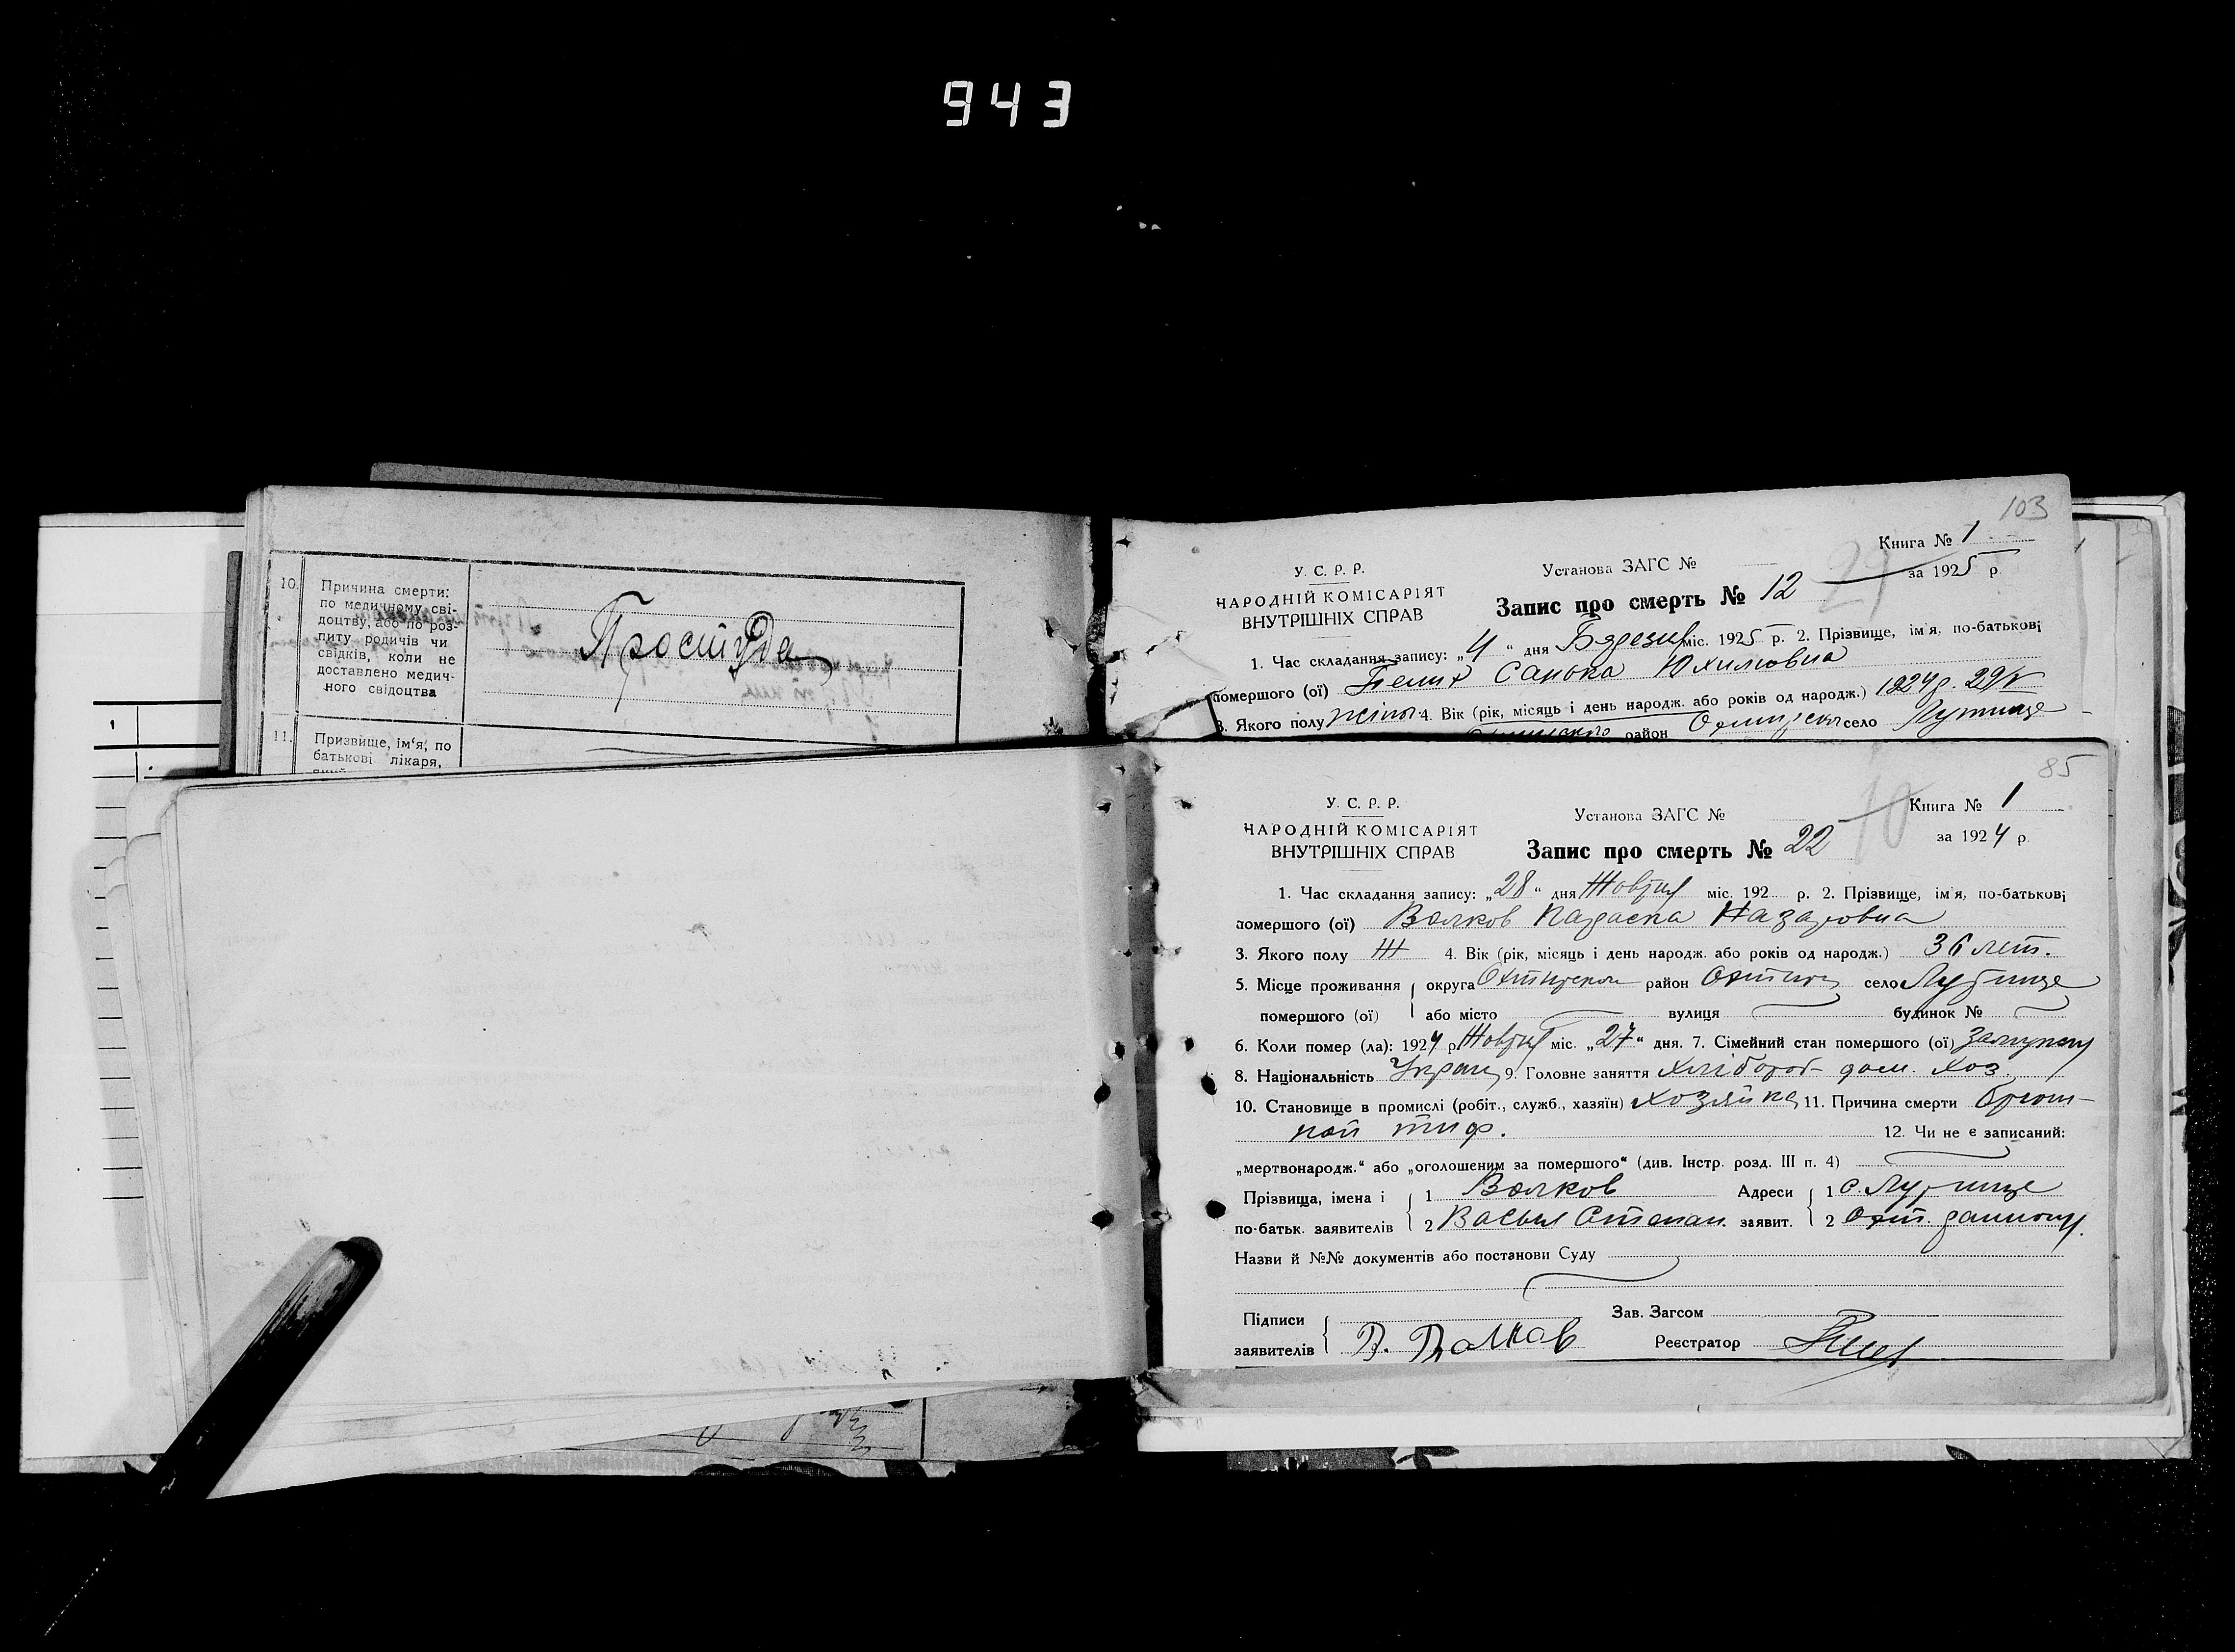 943
10.
Причина смерти:
по медичному сві-
доцтву, або по роз-
питу родичів чи
свідків, коли не
доставлено медич-
ного свідоцтва
Простуда
11.
Призвище, ім'я, по
батькові лікаря,
103
Книга № 1
У. С. Р. Р.
Установа ЗАГС №
за 1925 р.
НАРОДНІЙ КОМІСАРІЯТ
ВНУТРІШНІХ СПРАВ
Запис про смерть № 12
1. Час складання запису: „4“ дня міс. 1925 р. 2. Прізвище, ім'я, по-батькові
помершого (ої) Санька Юхимовна
3. Якого полу 4. Вік (рік, місяць і день народж. або років од народж.) 1924 р. 29/V
район село
85
У. С. Р. Р.
Установа ЗАГС №
Книга № 1
НАРОДНІЙ КОМІСАРІЯТ
за 1924 р.
ВНУТРІШНІХ СПРАВ
Запис про смерть № 22
1. Час складання запису: „28“ дня Жовтня міс. 192 р. 2. Прізвище, ім'я, по-батькові
помершого (ої) Волков Параска Назаровна
3. Якого полу Ж 4. Вік (рік, місяць і день народж. або років од народж.) 36 лет.
5. Місце проживання округа район село
помершого (ої) або місто вулиця будинок №
6. Коли помер (ла): 1924 р. Жовтня міс. „27“ дня. 7. Сімейний стан помершого (ої)
8. Національність 9. Головне заняття Хлібороб дом. хоз.
10. Становище в промислі (робіт., служб., хазяїн) Хозяйка 11. Причина смерти Брюш-
ной тиф.
12. Чи не є записаний:
„мертвонародж.“ або „оголошеним за помершого“ (див. Інстр. розд. III п. 4)
Прізвища, імена і 1 Волков Адреси 1 с.
по-батьк. заявителів 2 Василь Степан. заявит. 2 Охт. району.
Назви й №№ документів або постанови Суду
Підписи
Зав. Загсом
заявителів В. Волков Реєстратор